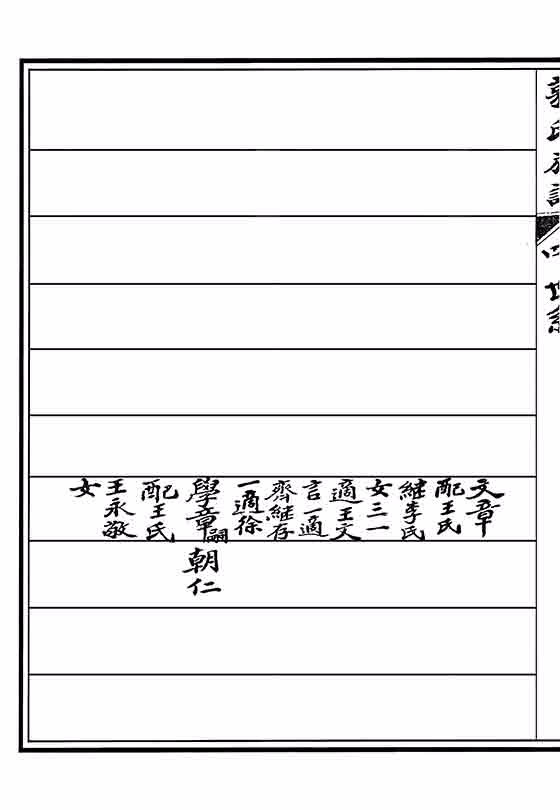 郭氏族譜
四
世系
文章
配王氏
繼李氏
女三一
適王文
言一適
齊繼存
一適徐
學章嗣
朝仁
配王氏
王永敬
女